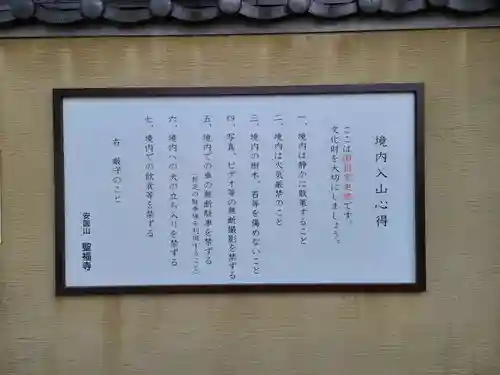 境内入山心得
ここは国指定史跡です。
文化財を大切にしましょう。
一、境内は静かに散策すること
二、境内は火気厳禁のこと
三、境内の樹木、苔等を傷めないこと
四、写真、ビデオ等の無断撮影を禁ずる
五、境内での車の無断駐車を禁ずる
六、境内への犬の立ち入りを禁ずる
七、境内での飲食等を禁ずる
右 厳守のこと
安国山 聖福寺